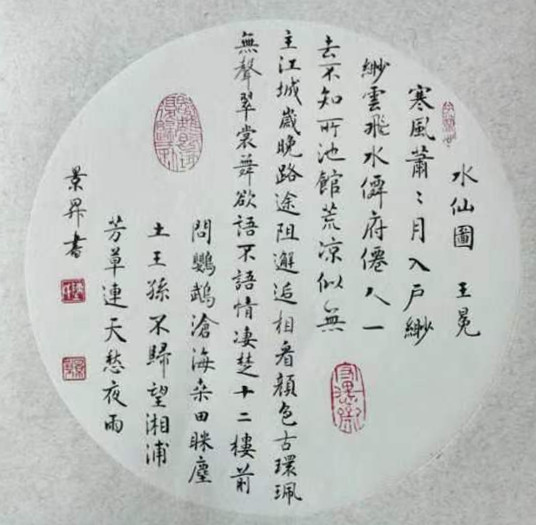 水仙圖 王冕
寒風蕭〻月入戶緲
緲雲飛水僊府僊人一
去不知所池館荒凉似無
主江城歲晚路途阻邂逅相看顏色古環珮
無聲翠裳舞欲語不語情凄楚十二樓前
問鸚鵡滄海桑田眯塵
土王孫不歸望湘浦
芳草連天愁夜雨
景昇書